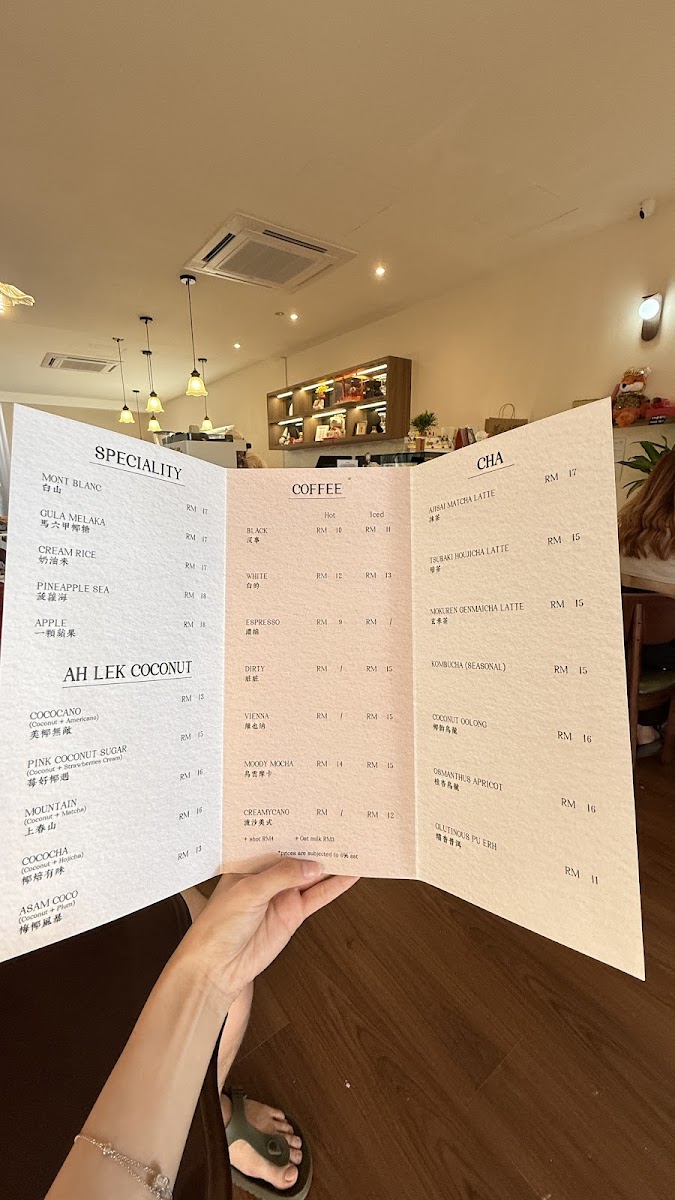 SPECIALITY
MONT BLANC RM 17
白山
GULA MELAKA RM 17
馬六甲椰糖
CREAM RICE RM 17
奶油米
PINEAPPLE SEA RM 18
菠蘿海
APPLE RM 18
一顆蘋果
AH LEK COCONUT
COCOCANO RM 13
(Coconut + Americano)
美椰無敵
PINK COCONUT SUGAR RM 15
(Coconut + Strawberries Cream)
莓好椰遇
MOUNTAIN RM 16
(Coconut + Matcha)
上春山
COCOCHA RM 16
(Coconut + Hojicha)
椰焙有味
ASAM COCO RM 13
(Coconut + Plum)
梅椰風暴
COFFEE
Hot Iced
BLACK RM 10 RM 11
沒事
WHITE RM 12 RM 13
白的
ESPRESSO RM 9 RM /
濃縮
DIRTY RM / RM 15
髒髒
VIENNA RM / RM 15
維也納
MOODY MOCHA RM 14 RM 15
烏雲摩卡
CREAMYCANO RM / RM 12
流沙美式
+ shot RM4 + Oat milk RM3
*prices are subjected to 6% sst
CHA
AJISAI MATCHA LATTE RM 17
抹茶
TSUBAKI HOUJICHA LATTE RM 15
焙茶
MOKUREN GENMAICHA LATTE RM 15
玄米茶
KOMBUCHA (SEASONAL) RM 15
COCONUT OOLONG RM 16
椰韵烏龍
OSMANTHUS APRICOT RM 16
桂杏烏龍
GLUTINOUS PU ERH RM 11
糯香普洱